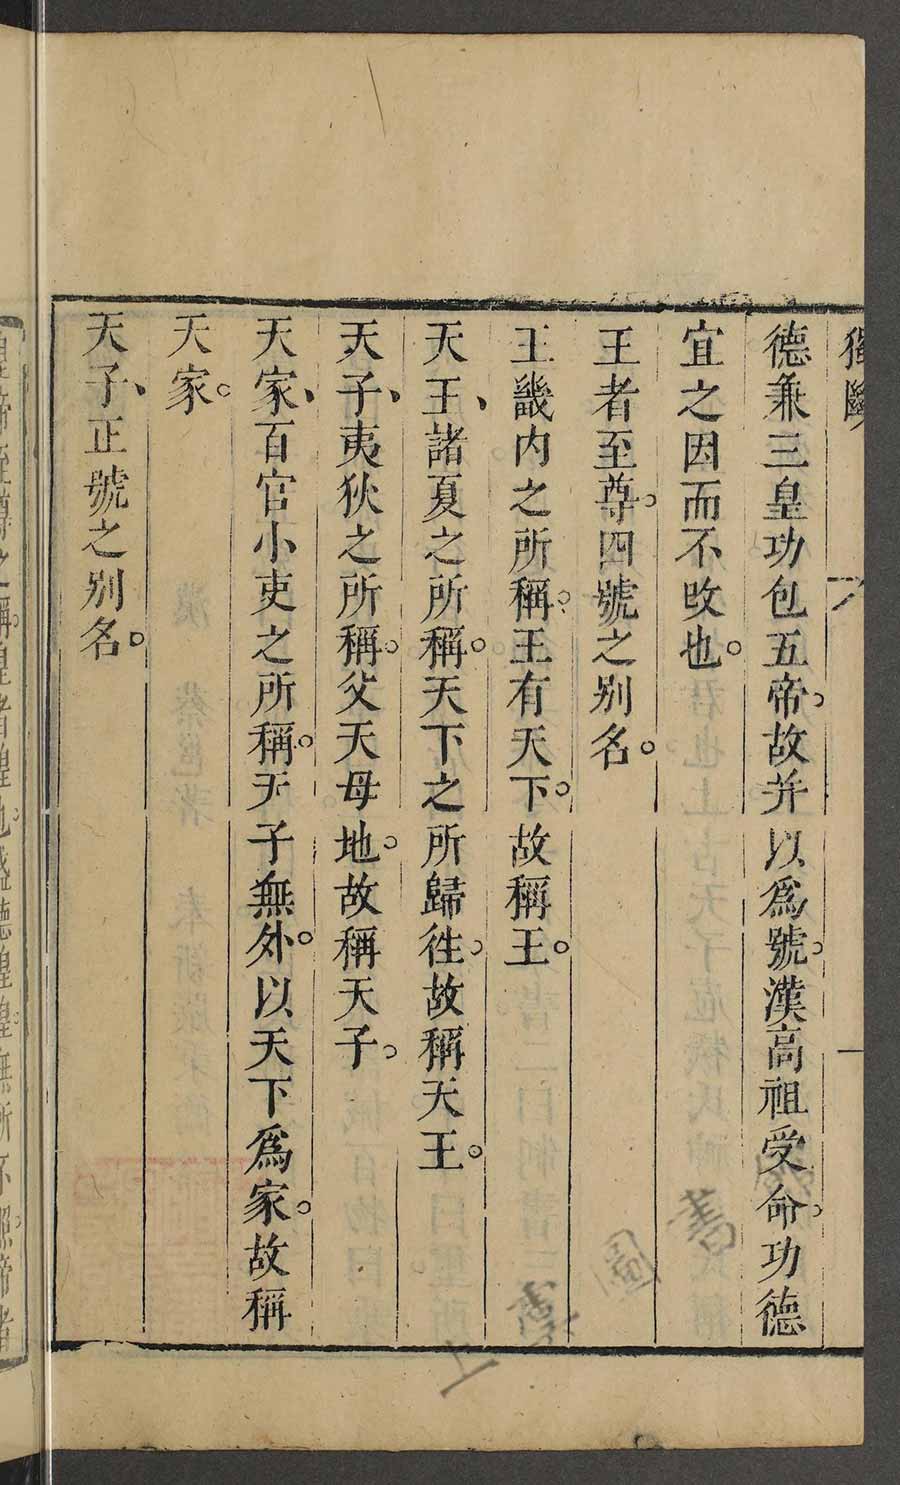 獨斷
德兼三皇功包五帝。故并以爲號。漢高祖受命。功德
宜之因而不改也。
王者至尊。四號之别名。
王畿内之所稱。王有天下。故稱王。
天王、諸夏之所稱。天下之所歸徃。故稱天王。
天子、夷狄之所稱。父天母地。故稱天子。
天家、百官小吏之所稱。天子無外。以天下爲家。故稱
天家。
天子、正號之别名。